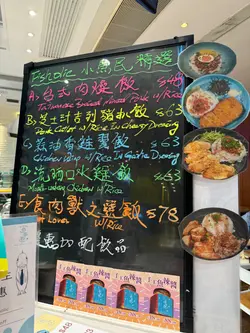 小魚民 精選
A. 台式肉燥飯 $48
Taiwanese Braised Minced Pork w/ Rice
B. 芝士汁吉列豬扒飯 $63
Pork Cutlet w/ Rice In Cheesy Dressing
C. 蒜油香雞翼飯 $63
Chicken Wing w/ Rice In Garlic Dressing
D. 流汁口水雞飯 $63
Mouth-watering Chicken w/ Rice
E. 食肉獸之選飯 $78
Meat Lover w/ Rice
配飲品